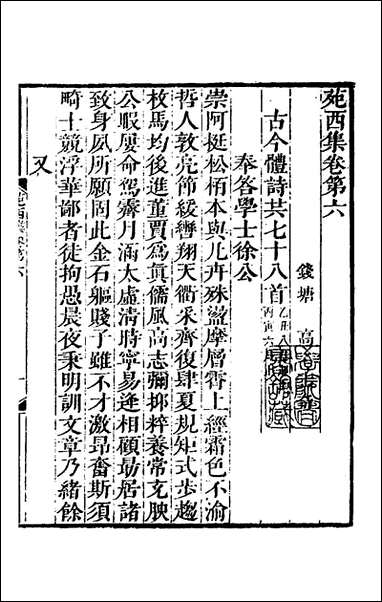 苑西集卷第六
錢塘 高
古今體詩共七十八首
奉答學士徐公
崇阿挺松栢本與凡卉殊盤摩層霄上經霜色不渝
哲人敦亮節緩轡翔天衢采齊復肆夏規矩式步趨
枚馬均後進董賈爲眞儒風高志彌抑粹養常充腴
公暇屢命駕霽月滿太虛清時寧易逢相顧勗居諸
致身夙所願固此金石軀賤子雖不才激昂奮斯須
畸士競浮華鄙者徒拘愚晨夜秉明訓文章乃緒餘
又